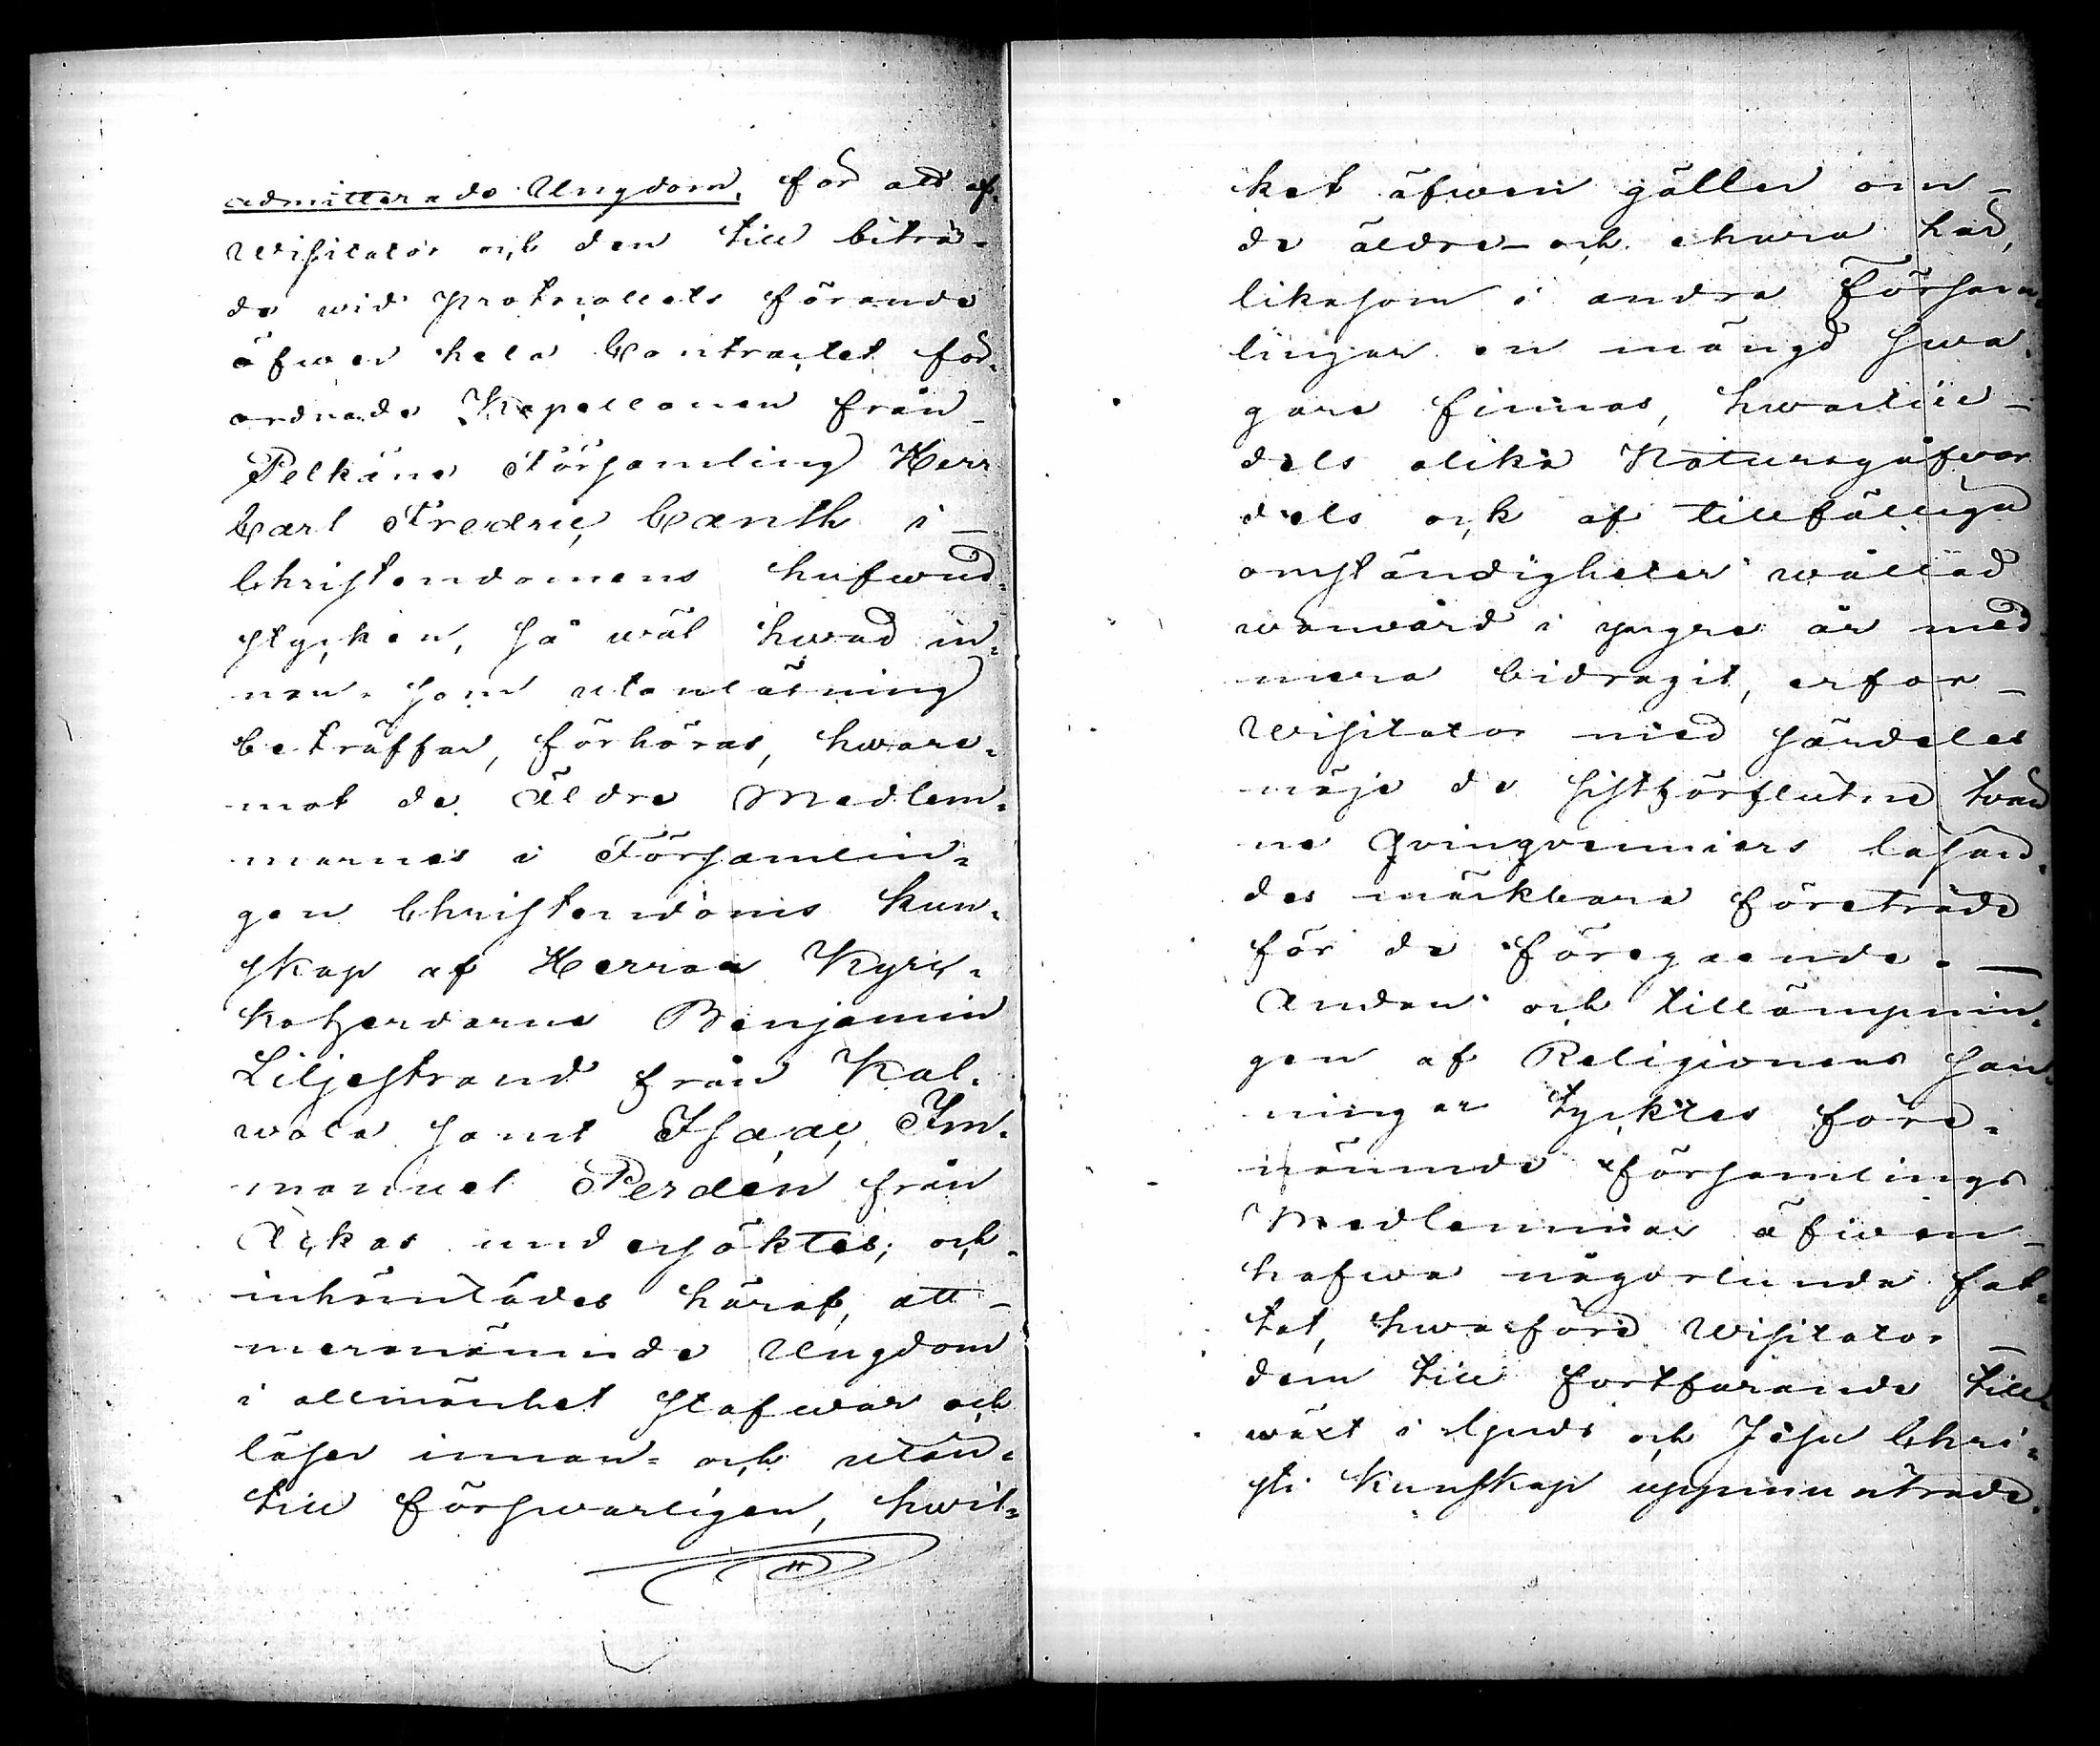 admitterade Ungdom, för att af
Wisitator och den till biträ-
de wid protocollets förande
öfwer hela Contractet för-
ordnade Kapellanen från
Pelkäne Församling Herr
Carl Fredric Canth i
Christendomens hufwud-
stycken, så wäl hwad in-
nan- som utanläsning
beträffar, förhöras, hware-
mot de äldre Medlem-
marnes i Församlin-
gen Christendoms kun-
skap af Herrar Kyrc-
koherdarne Benjamin
Liljestrand från Kal-
wola samt Isaac Im-
manuel Perdén från
Ackas undersöktes; och
inhämtades häraf, att
meranämnde Ungdom
i allmänhet stafwar och
läser innan- och utan-
till förswarligen, hwil-
ket äfwen gäller om
de äldre och ehuru här,
likasom i andra Försam-
lingar en mängd swa-
gare finnas, hwartill
dels olika Natursgåfwor
dels ock af tillfälliga
omständigheter wållad
wanvård i yngre år med
mera bidragit, erfor
Wisitator med särdeles
nöje de sistförflutne twän-
ne Qvinqvenniers läsan-
des märkbara företräde
för de föregående.
Andan och tillämpnin-
gen af Religionens san-
ningar tycktes före-
nämnde församlings
Medlemmar äfwen
hafwa någorlunda fat-
tat, hwarföre Wisitator
dem till fortfarande till-
wäxt i Guds och Jesu Chri-
sti Kunskap uppmuntrade.